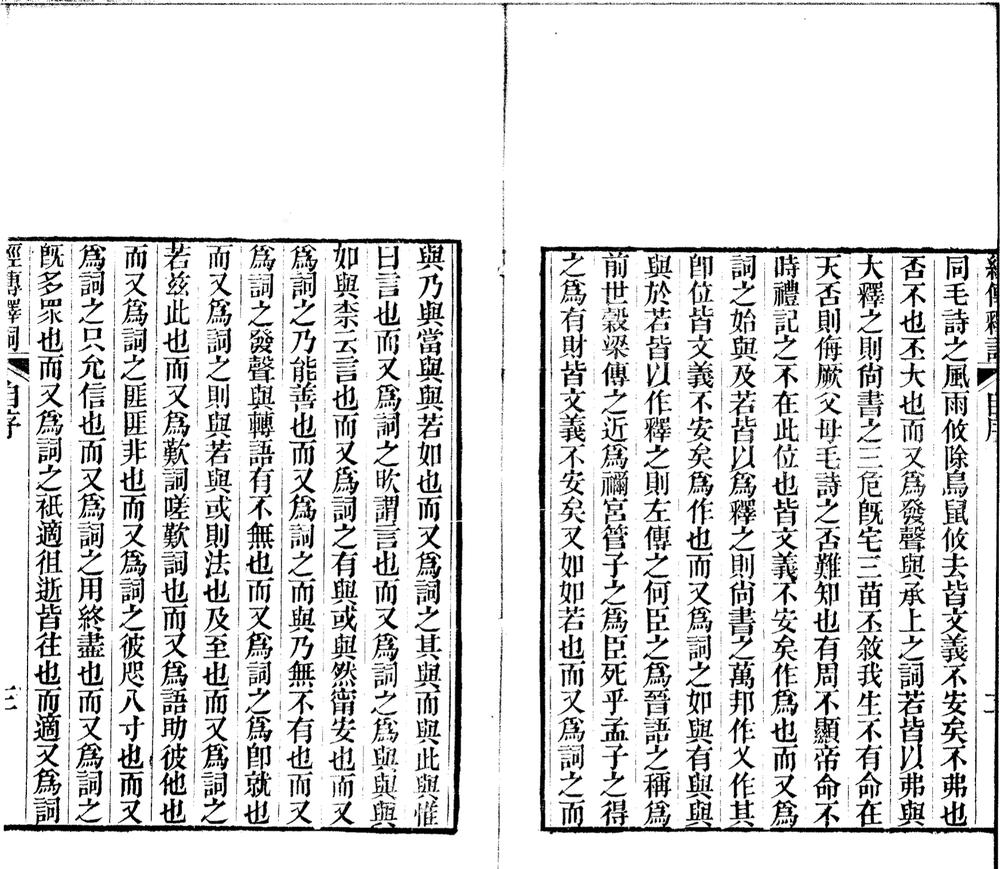 經傳釋詞 自序
同毛詩之風雨攸除鳥鼠攸去皆文義不安矣不弗也
否不也丕大也而又爲發聲與承上之詞若皆以弗與
大釋之則尙書之三危旣宅三苗丕敘我生不有命在
天否則侮厥父母毛詩之否難知也有周不顯帝命不
時禮記之不在此位也皆文義不安矣作爲也而又爲
詞之始與及若皆以爲釋之則尙書之萬邦作乂作其
卽位皆文義不安矣爲作也而又爲詞之如與有與與
與於若皆以作釋之則左傳之何臣之爲晉語之稱爲
前世穀梁傳之近爲禰宮管子之爲臣死乎孟子之得
之爲有財皆文義不安矣又如如若也而又爲詞之而
與乃與當與與若如也而又爲詞之其與而與此與惟
曰言也而又爲詞之欥謂言也而又爲詞之爲與與與
如與柰云言也而又爲詞之有與或與然甯安也而又
爲詞之乃能善也而又爲詞之而與乃無不有也而又
爲詞之發聲與轉語有不無也而又爲詞之爲卽就也
而又爲詞之則與若與或則法也及至也而又爲詞之
若茲此也而又爲歎詞嗟歎詞也而又爲語助彼他也
而又爲詞之匪匪非也而又爲詞之彼咫八寸也而又
爲詞之只允信也而又爲詞之用終盡也而又爲詞之
旣多眾也而又爲詞之祇適徂逝皆往也而適又爲詞
經傳釋詞 自序 三